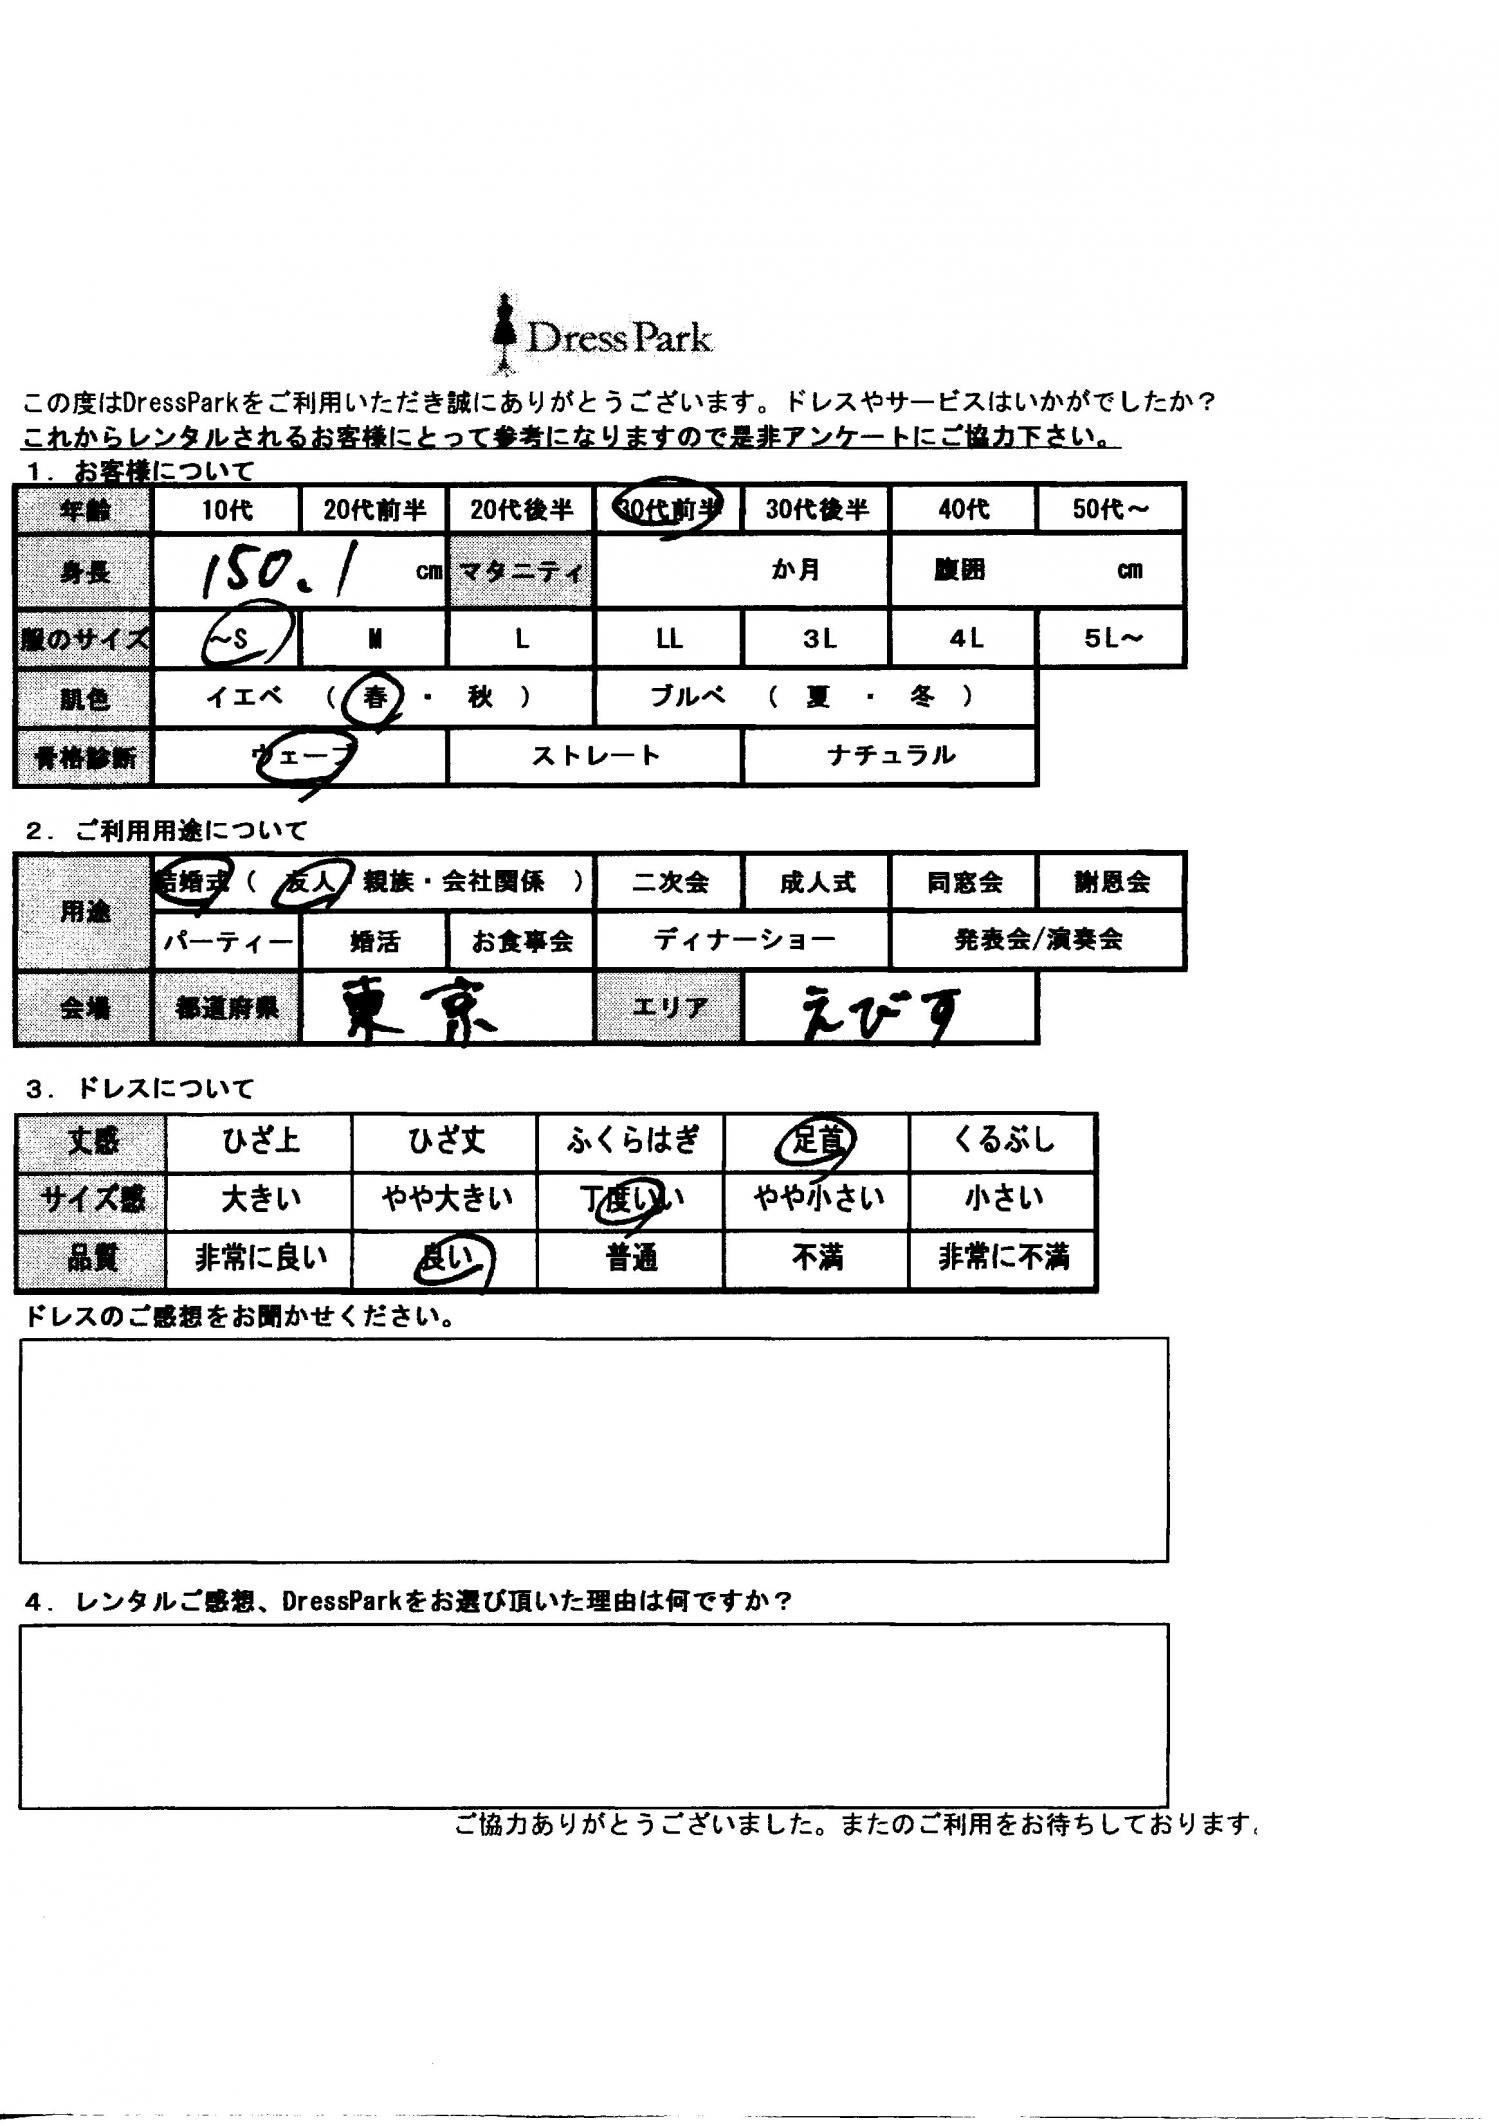 Dress Park
この度はDressParkをご利用いただき誠にありがとうございます。ドレスやサービスはいかがでしたか？
これからレンタルされるお客様にとって参考になりますので是非アンケートにご協力下さい。
1. お客様について
年齢 10代 20代前半 20代後半 30代前半 30代後半 40代 50代～
身長 150.1 cm マタニティ か月 腹囲 cm
服のサイズ ～S M L LL 3L 4L 5L～
肌色 イエベ （ 春 ・ 秋 ） ブルベ （ 夏 ・ 冬 ）
骨格診断 ウェーブ ストレート ナチュラル
2. ご利用用途について
用途 結婚式（ 友人・親族・会社関係 ） 二次会 成人式 同窓会 謝恩会
パーティー 婚活 お食事会 ディナーショー 発表会/演奏会
会場 都道府県 東京 エリア えびす
3. ドレスについて
丈感 ひざ上 ひざ丈 ふくらはぎ 足首 くるぶし
サイズ感 大きい やや大きい 丁度いい やや小さい 小さい
品質 非常に良い 良い 普通 不満 非常に不満
ドレスのご感想をお聞かせください。
4. レンタルご感想、DressParkをお選び頂いた理由は何ですか？
ご協力ありがとうございました。またのご利用をお待ちしております。